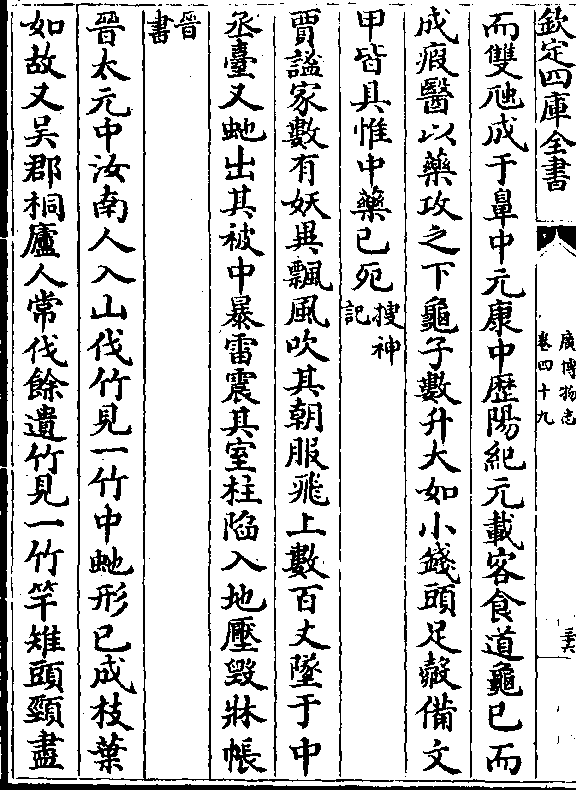 欽定四庫全書
廣博物志
卷四十九
而雙虺成于鼻中元康中歷陽紀元載客食道龜已而
成瘕醫以藥攻之下龜子數升大如小錢頭足殻備文
甲皆具惟中藥已死搜神記
賈謐家數有妖異飄風吹其朝服飛上數百丈墜于中
丞臺又虵出其被中暴雷震其室柱陷入地壓毀牀帳
晉書
晉太元中汝南人入山伐竹見一竹中虵形已成枝葉
如故又吳郡桐廬人常伐餘遺竹見一竹竿雉頭頸盡